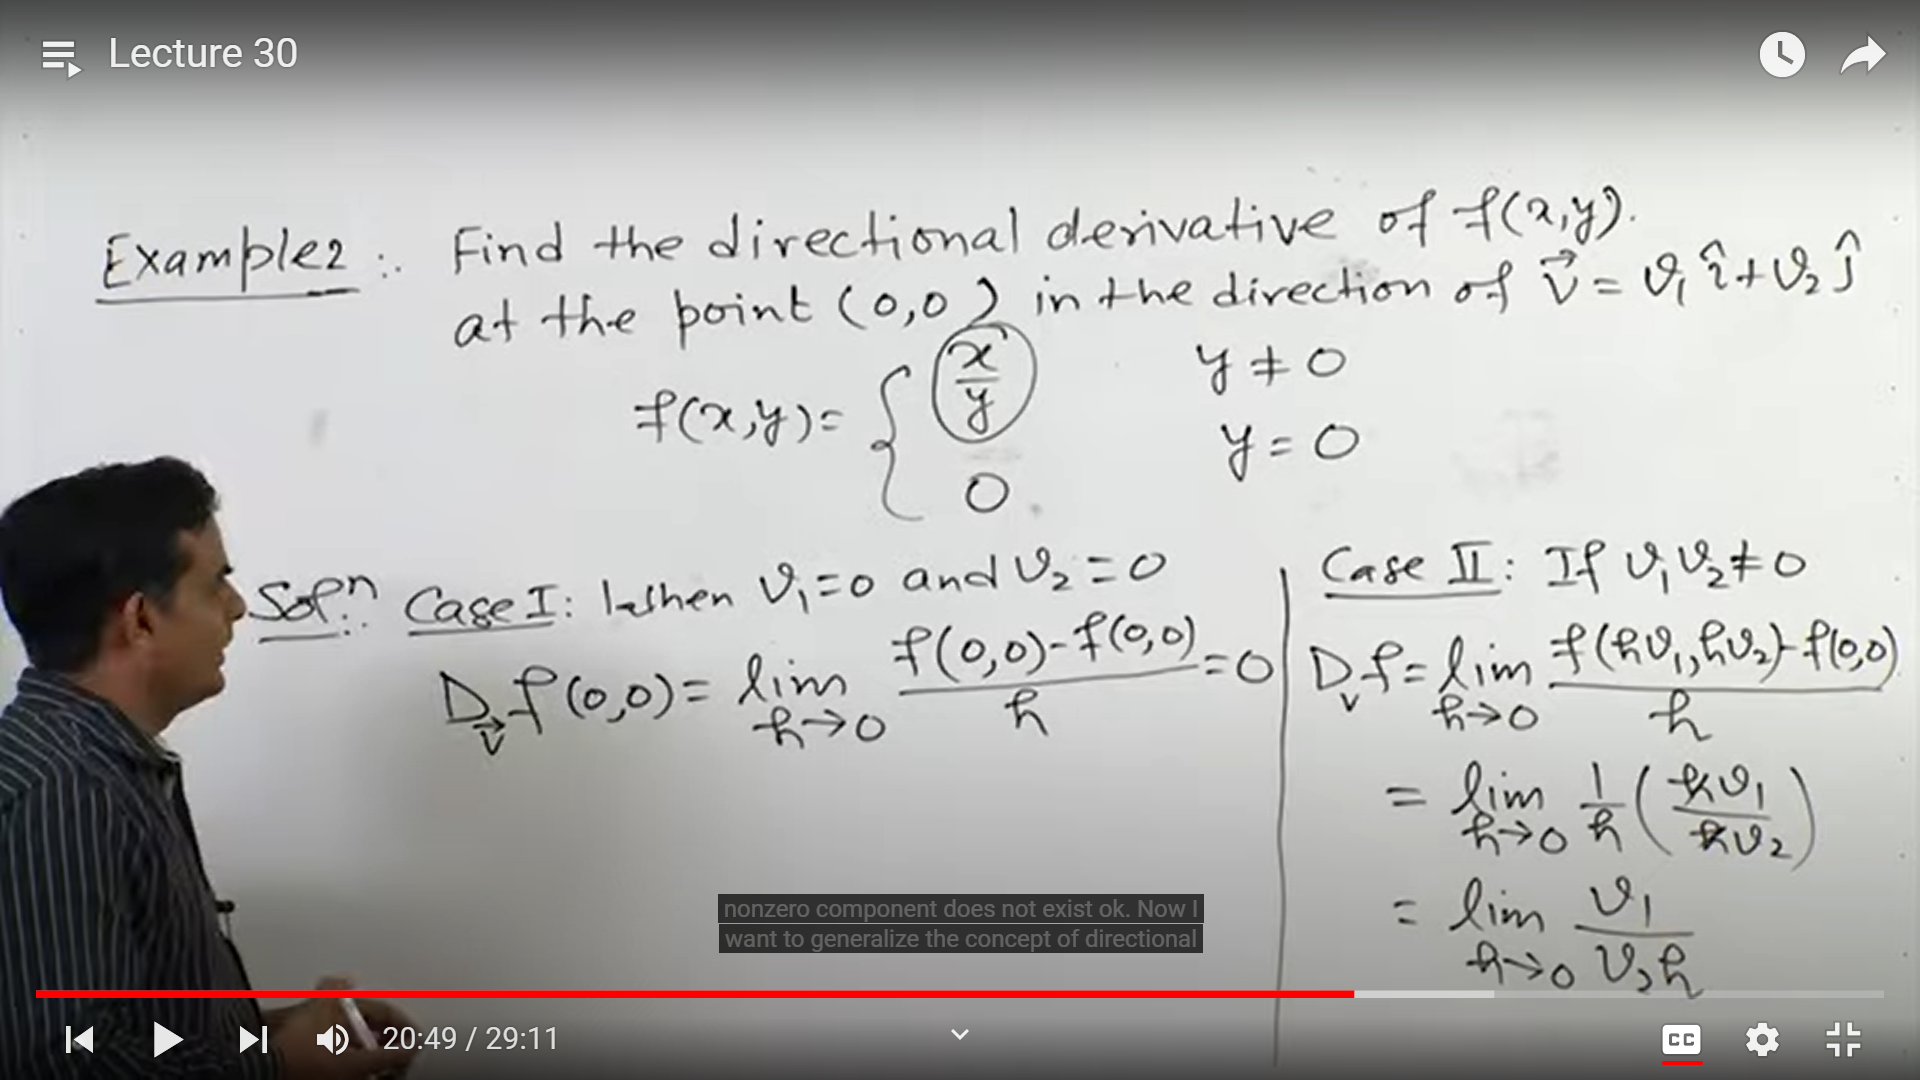 Lecture 30
Example 2 :. Find the directional derivative of f(x,y).
at the point (0,0) in the direction of v⃗ = v₁ î + v₂ ĵ
f(x,y) = { x/y y ≠ 0
0. y = 0
Solⁿ:. Case I: When v₁ = 0 and v₂ = 0
D_v⃗ f(0,0) = lim h→0 (f(0,0) - f(0,0))/h = 0
Case II: If v₁ v₂ ≠ 0
D_v f = lim h→0 (f(hv₁, hv₂) - f(0,0))/h
= lim h→0 1/h (hv₁/hv₂)
= lim h→0 v₁/v₂h
nonzero component does not exist ok. Now I
want to generalize the concept of directional
20:49 / 29:11
CC